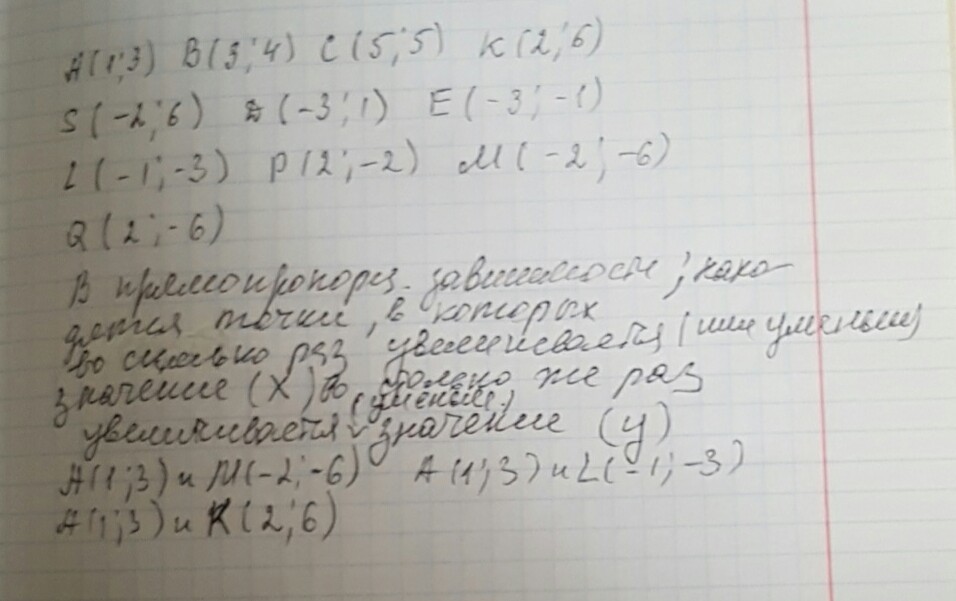 A(1;3) B(3;4) C(5;5) K(2;6)
S(-2;6) D(-3;1) E(-3;-1)
L(-1;-3) P(2;-2) M(-2;-6)
Q(2;-6)
В прямопропорц. зависимости; нахо-
дятся точки, в которых
во сколько раз увеличивается (или уменьш)
значение (x) во столько же раз
(уменьш.)
увеличивается значение (y)
A(1;3) и M(-2;-6) A(1;3) и L(-1;-3)
A(1;3) и K(2;6)